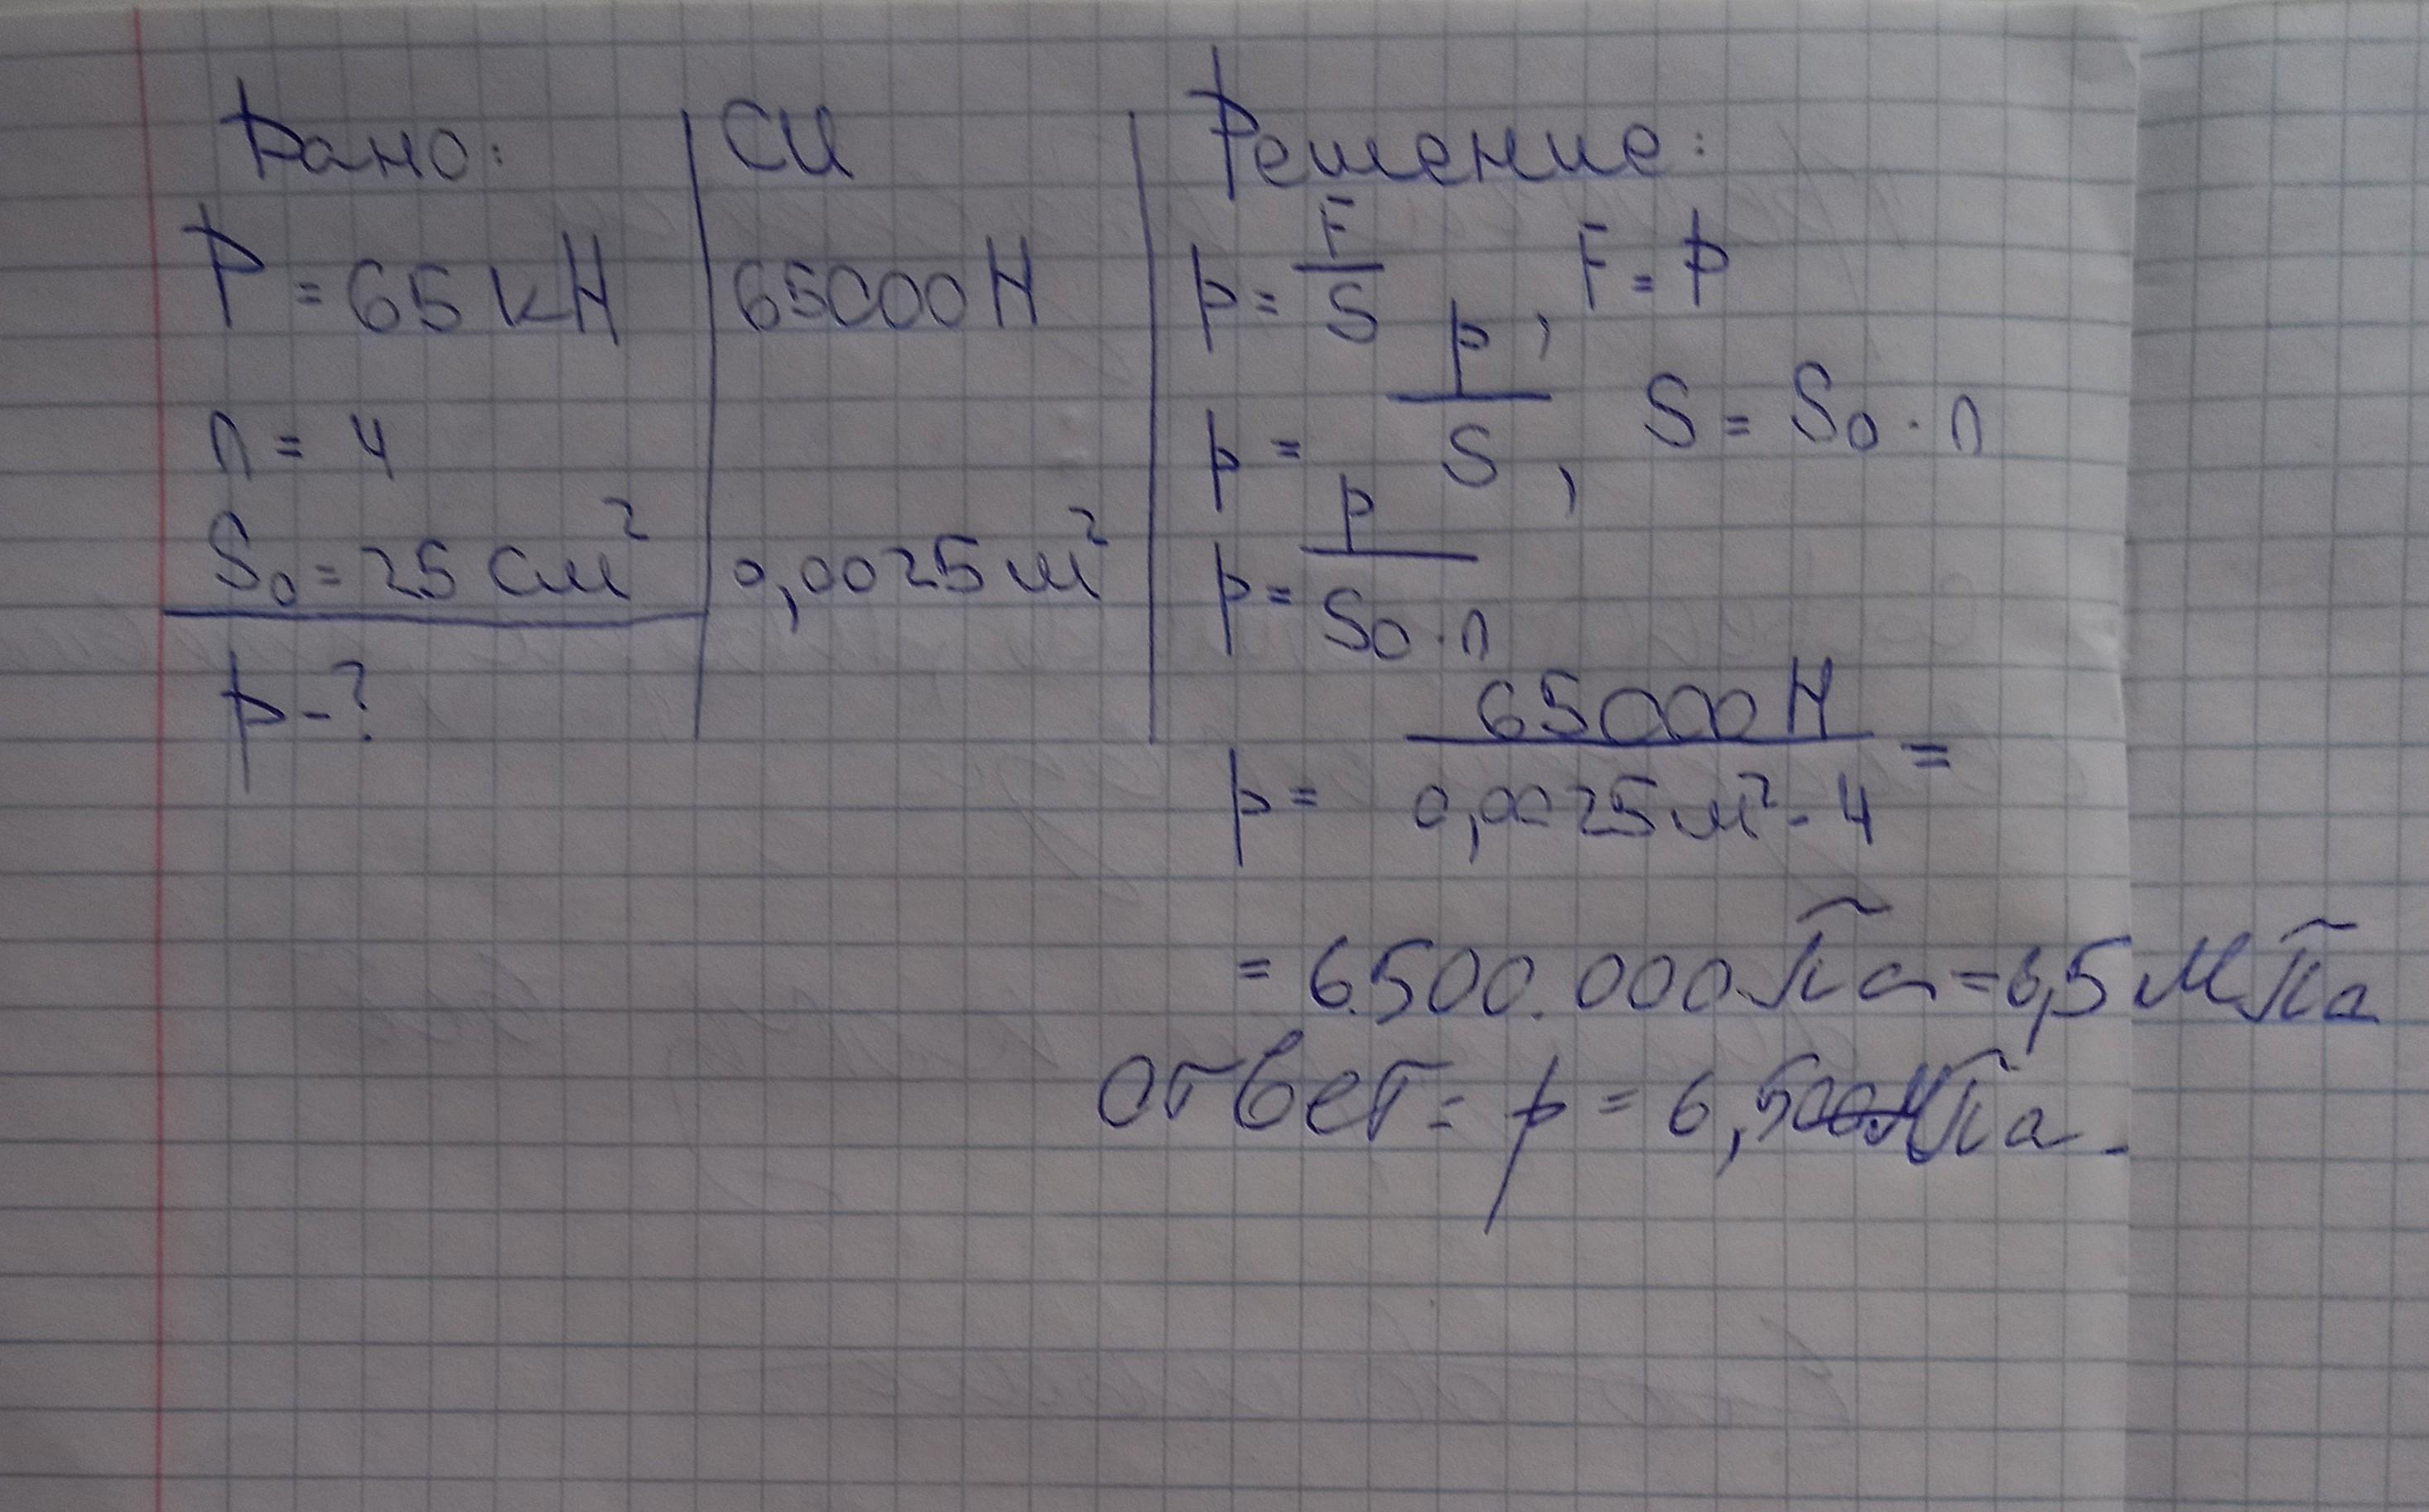 Дано:
P = 65 кН
n = 4
S₀ = 25 см²
p - ?
СИ
65000 Н
0,0025 м²
Решение:
p = F/S, F = P
p = P/S, S = S₀ · n
p = P/(S₀ · n)
p = 65000 Н/(0,0025 м² · 4) =
= 6.500.000 Па = 6,5 МПа
Ответ: p = 6,5 МПа.